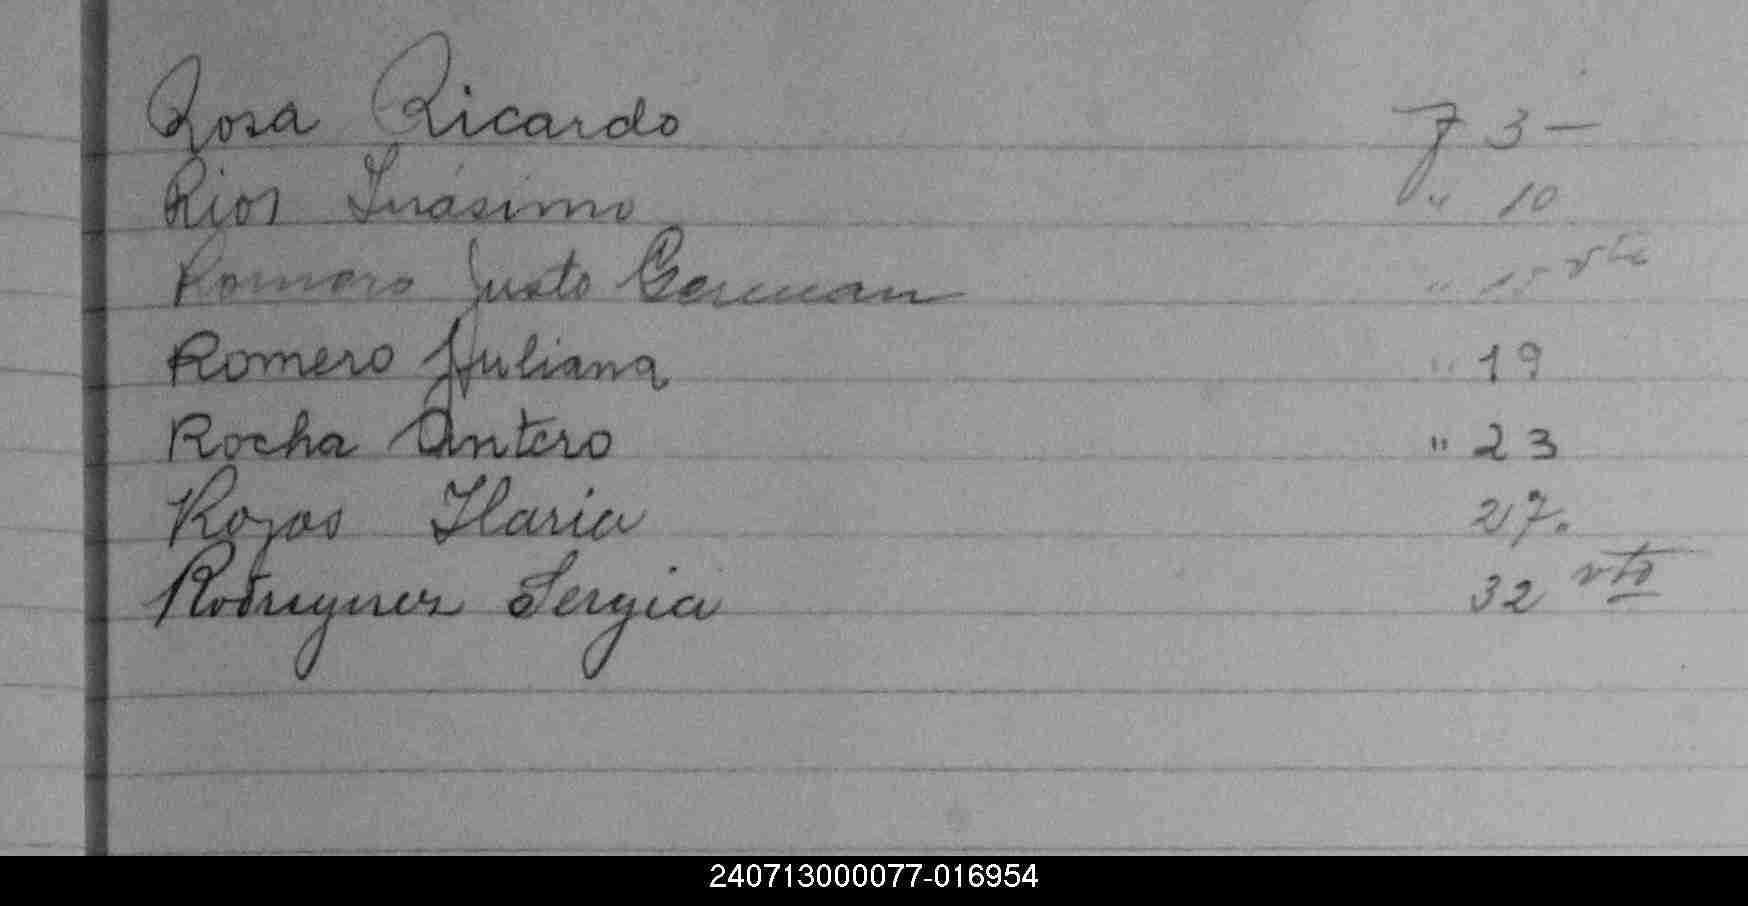 Rosa Ricardo f 3 —
Rios " 10
Romero Justo German " 15 vto
Romero Juliana " 19
Rocha Antero " 23
Rojas Ilaria 27.
Rodriguez Sergia 32 vto
240713000077-016954